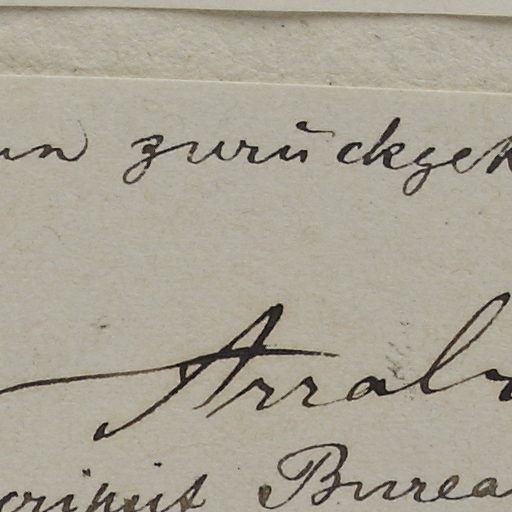 un zurückgek
Arral
Burea